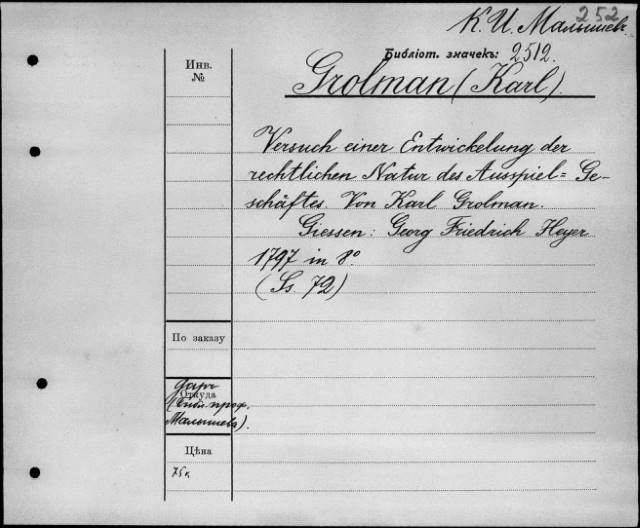 252
К. И. Малышев
Библіот. значекъ: 2512.
Инв.
№
Grolman (Karl).
Versuch einer Entwickelung der
rechtlichen Natur des Ausspiel= Ge-
schäftes. Von Karl Grolman.
Giessen: Georg Friedrich Heyer
1797 in 8º
(Ss. 72)
По заказу
Откуда
даръ
(библ. проф.
Малышева).
Цѣна
75к